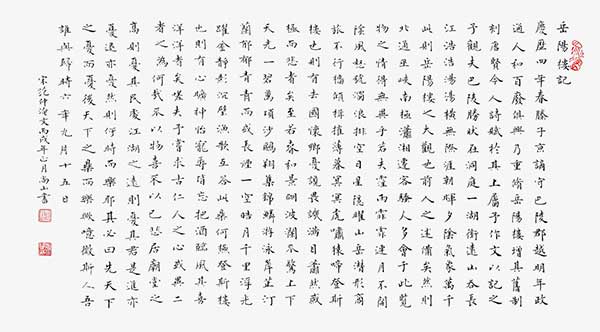 岳陽樓記
慶歷四年春滕子京謫守巴陵郡越明年政
通人和百廢俱興乃重脩岳陽樓增其舊制
刻唐賢今人詩賦於其上屬予作文以記之
予觀夫巴陵勝狀在洞庭一湖銜遠山吞長
江浩浩湯湯橫無際涯朝暉夕陰氣象萬千
此則岳陽樓之大觀也前人之述備矣然則
北通巫峽南極瀟湘遷客騷人多會于此覽
物之情得無異乎若夫霪雨霏霏連月不開
陰風怒號濁浪排空日星隱曜山岳潛形商
旅不行檣傾楫摧薄暮冥冥虎嘯猿啼登斯
樓也則有去國懷鄉憂讒畏譏滿目蕭然感
極而悲者矣至若春和景明波瀾不驚上下
天光一碧萬頃沙鷗翔集錦鱗游泳岸芷汀
蘭郁郁青青而或長煙一空皓月千里浮光
躍金靜影沉璧漁歌互答此樂何極登斯樓
也則有心曠神怡寵辱偕忘把酒臨風其喜
洋洋者矣嗟夫予嘗求古仁人之心或異二
者之為何哉不以物喜不以己悲居廟堂之
高則憂其民處江湖之遠則憂其君是進亦
憂退亦憂然則何時而樂耶其必曰先天下
之憂而憂後天下之樂而樂歟噫微斯人吾
誰與歸時六年九月十五日
宋范仲淹文丙戌年正月尚山書